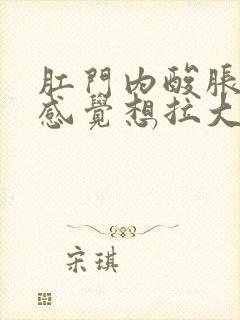 肛門內酸脹
感覺想拉大
宋琪